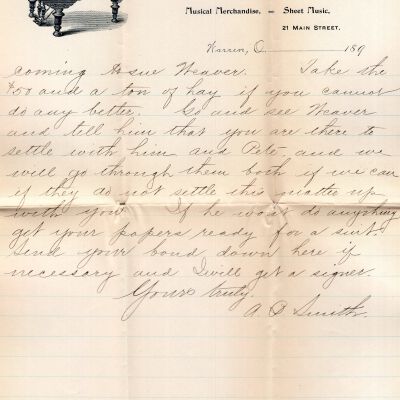 Musical Merchandise, — Sheet Music,
21 MAIN STREET.
Warren, O. 189
coming to sue Weaver. Take the
$50 and a ton of hay if you cannot
do any better. Go and see Weaver
and tell him that you are there to
settle with him and Pete, and we
will go through them both if we can
if they do not settle this matter up
with you. If he wont do anything
get your papers ready for a suit.
Send your bond down here if
necessary and I will get a signer.
Yours truly.
A. D. Smith.